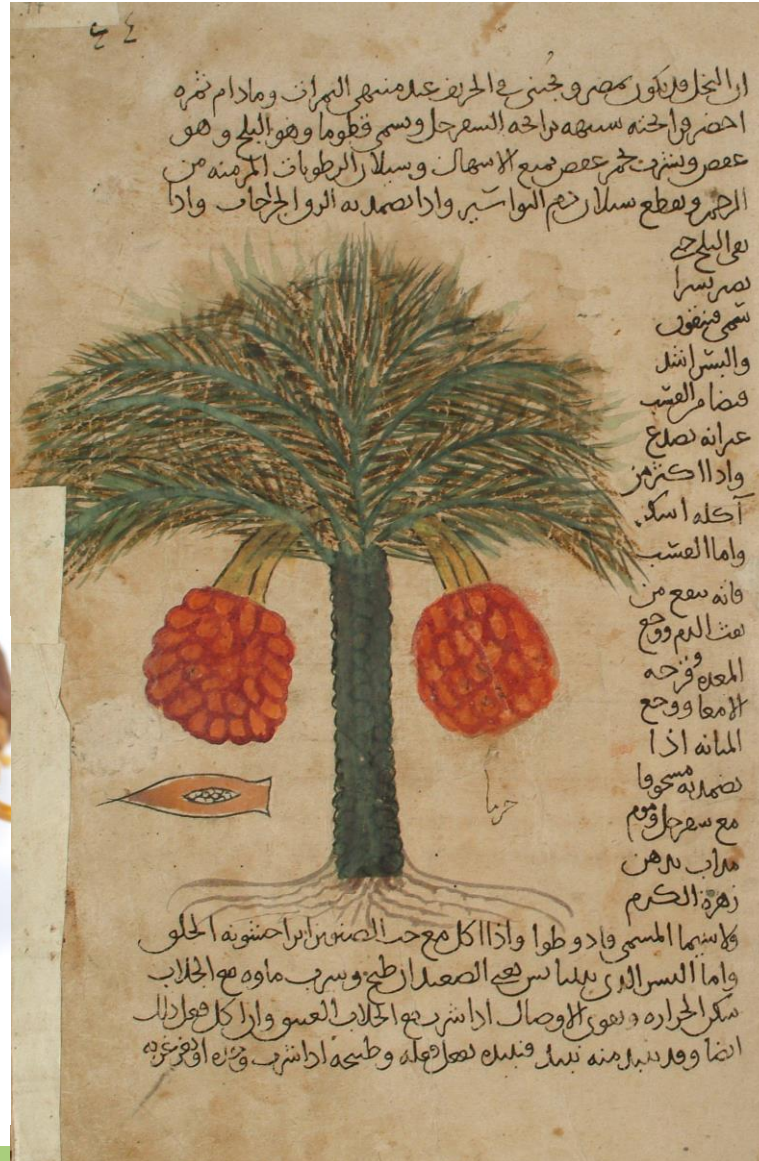 ٤٤
ان النخل قد يكون بمصر ويجتنى في الخريف عند منتهى الثمرات ومادام ثمره
اخضر فرائحته شبيهه برائحة السفرجل وسمى قطوما وهو البلح وهو
عفص ويشرب بخمر عفص يمنع الاسهال وسيلان الرطوبات المزمنه من
الرحم ويقطع سيلان دم البواسير واذا تضمد به الزق الجراحات واذا
بقى البلح حتى
يصير بسرا
سمى
والبسر اشد
قبضا من القسب
غير انه يصدع
واذا اكثر من
آكله اسكر
واما القسب
فانه ينفع من
نفث الدم ووجع
المعده وقرحه
الامعا ووجع
المثانه اذا
تضمد به مسحوقا
مع سفرجل وموم
مداب بدهن
زهرة الكرم
ولا سيما المسمى واذا اكل مع حب الصنوبر ابرا خشونه الحلق
واما البسر الذي الصعيد ان طبخ وشرب ماوه مع الجلاب
سكن الحراره ويقوى الاوصال اذا شرب مع الجلاب العتيق وان اكل فعل ذلك
ايضا وقد ينبذ منه نبيذ فنبيذه يفعل فعله وطبيخه اذا شرب وحده او تغرغر به
خرما